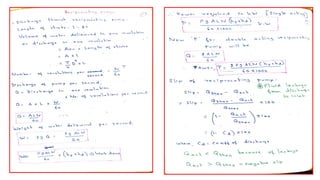 Reciprocating pump
- Discharge through reciprocating pump:
Length of stroke = L
Volume of water delivered in one revolution
or discharge in one revolution
= Area × Length of stroke
= A × L
Number of revolution per second = N/60
Discharge of pump per second
Q = Discharge in one revolution
× No. of revolution per second
Q = A × L × N/60
Q = ALN/60
Weight of water delivered per second.
W = ρg Q = ρg ALN/60
- Power required in kW (Single acting)
P = ρg ALN (hs+hd)/60×1000 kW
Now 'P' for double acting reciprocating
pump will be
Q = 2ALN/60
Power, P = 2ρg ALN (hs+hd)/60×1000
Slip of reciprocating pump:
Slip = Qthe - Qact
% Slip = Qthe - Qact/Qthe ×100
= (1 - Qact/Qthe) ×100
= (1 - Cd) ×100
where, Cd = Coeff of discharge
Qact < Qthe because of leakage
Qact > Qthe → negative slip